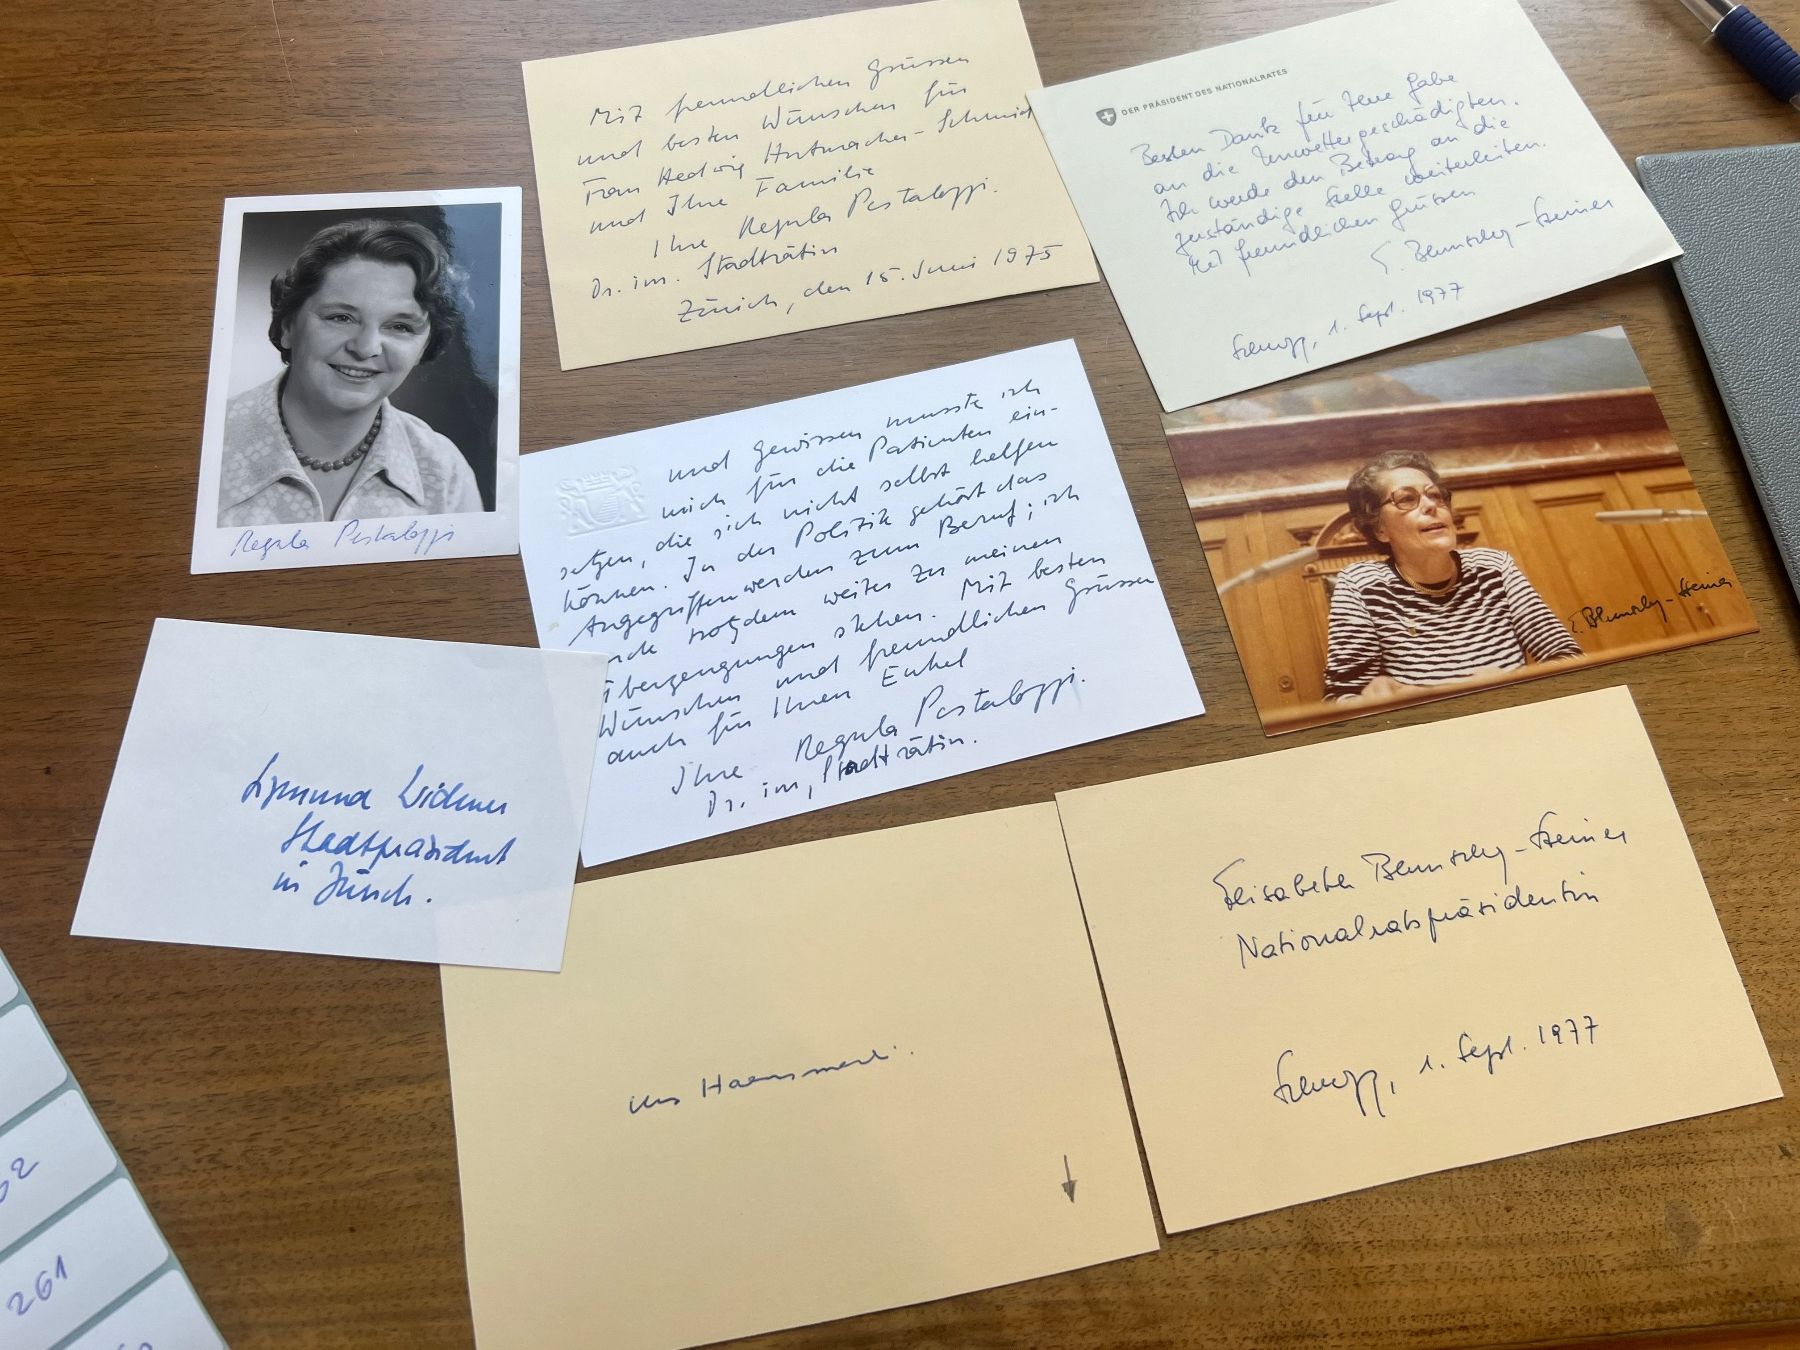 Mit freundlichen Grüssen
und besten Wünschen für
Frau Hedwig Hutmacher-Schmid
und Ihre Familie
Ihre Regula Pestalozzi.
Dr. iur. Stadträtin
Zürich, den 15. Juni 1975
DER PRÄSIDENT DES NATIONALRATES
Besten Dank für Ihre Gabe
an die Unwettergeschädigten.
Ich werde den Betrag an die
zuständige Stelle weiterleiten.
Mit freundlichen Grüssen
E. Blunschy-Steiner
Schwyz, 1. Sept. 1977
Regula Pestalozzi
und Gewissen musste ich
mich für die Patienten ein-
setzen, die sich nicht selbst helfen
können. In der Politik gehört das
Angegriffenwerden zum Beruf; ich
trotzdem weiter zu meinen
Überzeugungen stehen. Mit besten
Wünschen und freundlichen Grüssen
auch für Ihren Enkel
Ihre Regula Pestalozzi.
Dr. iur., Stadträtin.
E. Blunschy-Steiner
Sigmund Widmer
Stadtpräsident
in Zürich.
Elisabeth Blunschy-Steiner
Nationalratspräsidentin
Schwyz, 1. Sept. 1977
Haemmerli.
62
261